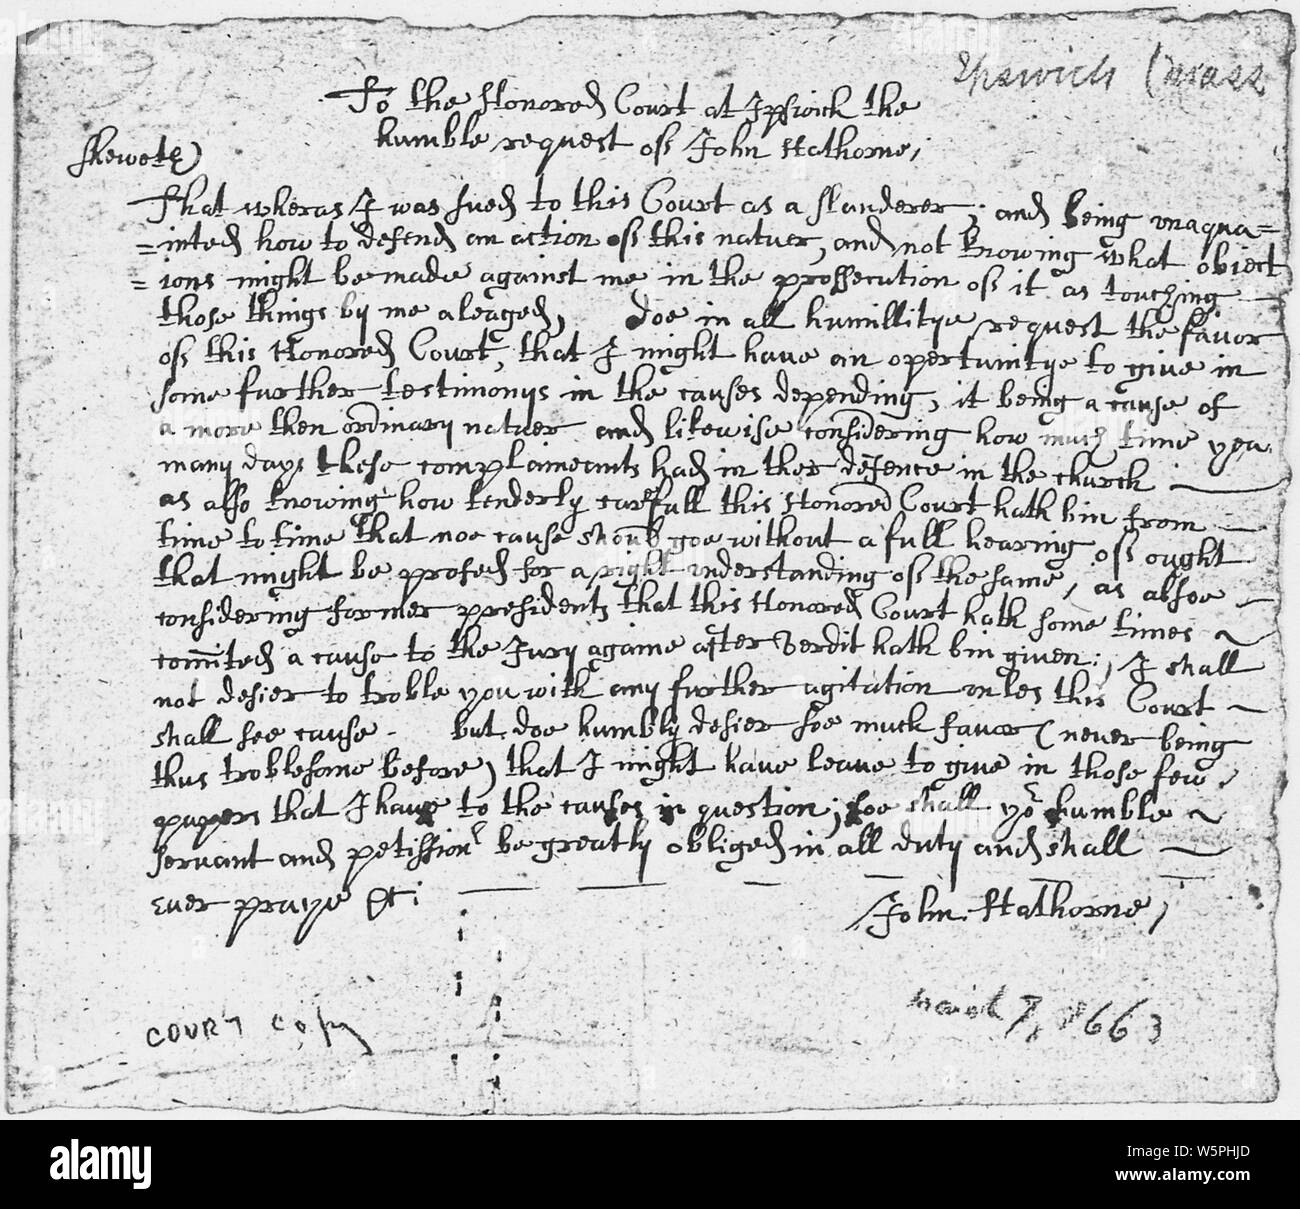 Ipswich (mass
To the Honored Court at Ipswich the
humble request off John Hathorne,
sheweth
That wheras I was sued to this Court as a slanderer; and being vnaqua=
=inted how to defend an action off this natuer, and not knowing what obiect
=ions might be made against me in the prossecution off it as touching
those things by me aleaged, doe in all humillitye request the favor
off this Honored Court, that I might have an opertunitye to give in
some further testimonys in the causes depending, it being a cause of
a more then ordinary natuer and likewise considering how much time yea
many days these complaineants had in ther defence in the church
as also knowing how tenderly carfull this Honored Court hath bin from
time to time that noe cause should goe without a full hearing off ought
that might be profed for a right vnderstanding off the same, as alsoe
considering former presidents that this Honored Court hath some times
comited a cause to the Jury againe after verdit hath bin given; I shall
not desier to troble you with any further agitation vnles this Court
shall see cause - but doe humbly desier soe much favor (never being
thus troblesome before) that I might have leave to give in those few
papers that I have to the causes in question; soe shall yor humble
servant and petissionr be greatly obliged in all duty and shall
ever praye &c:
John Hathorne,
COURT Copy
March 1663
alamy
Image ID: W5PHJD
www.alamy.com